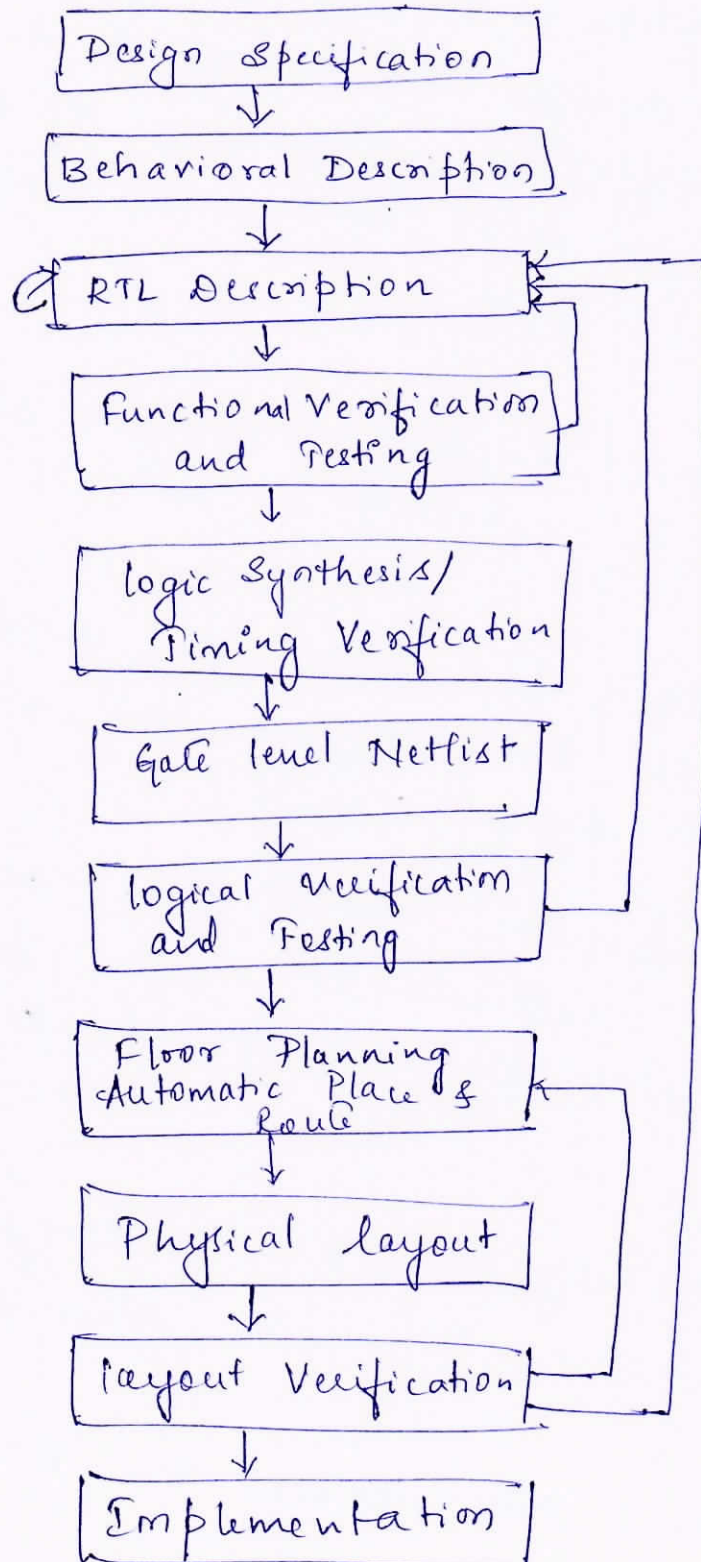 Design Specification
Behavioral Description
RTL Description
Functional Verification
and Testing
logic Synthesis/
Timing Verification
Gate level Netlist
logical Verification
and Testing
Floor Planning
Automatic Place &
Route
Physical layout
layout Verification
Implementation